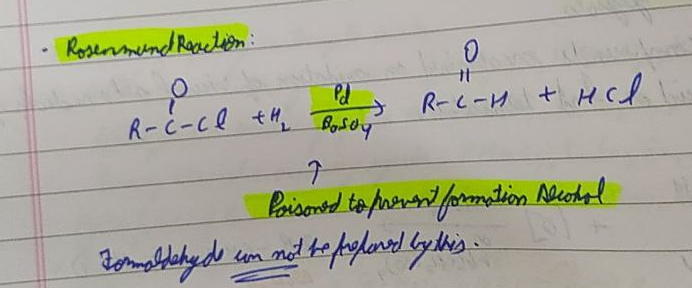 • Rosenmund Reaction:
O O
R-C-Cl + H2 Pd → R-C-H + HCl
BaSO4
↑
Poisoned to prevent formation Alcohol
Formaldehyde can not be prepared by this.